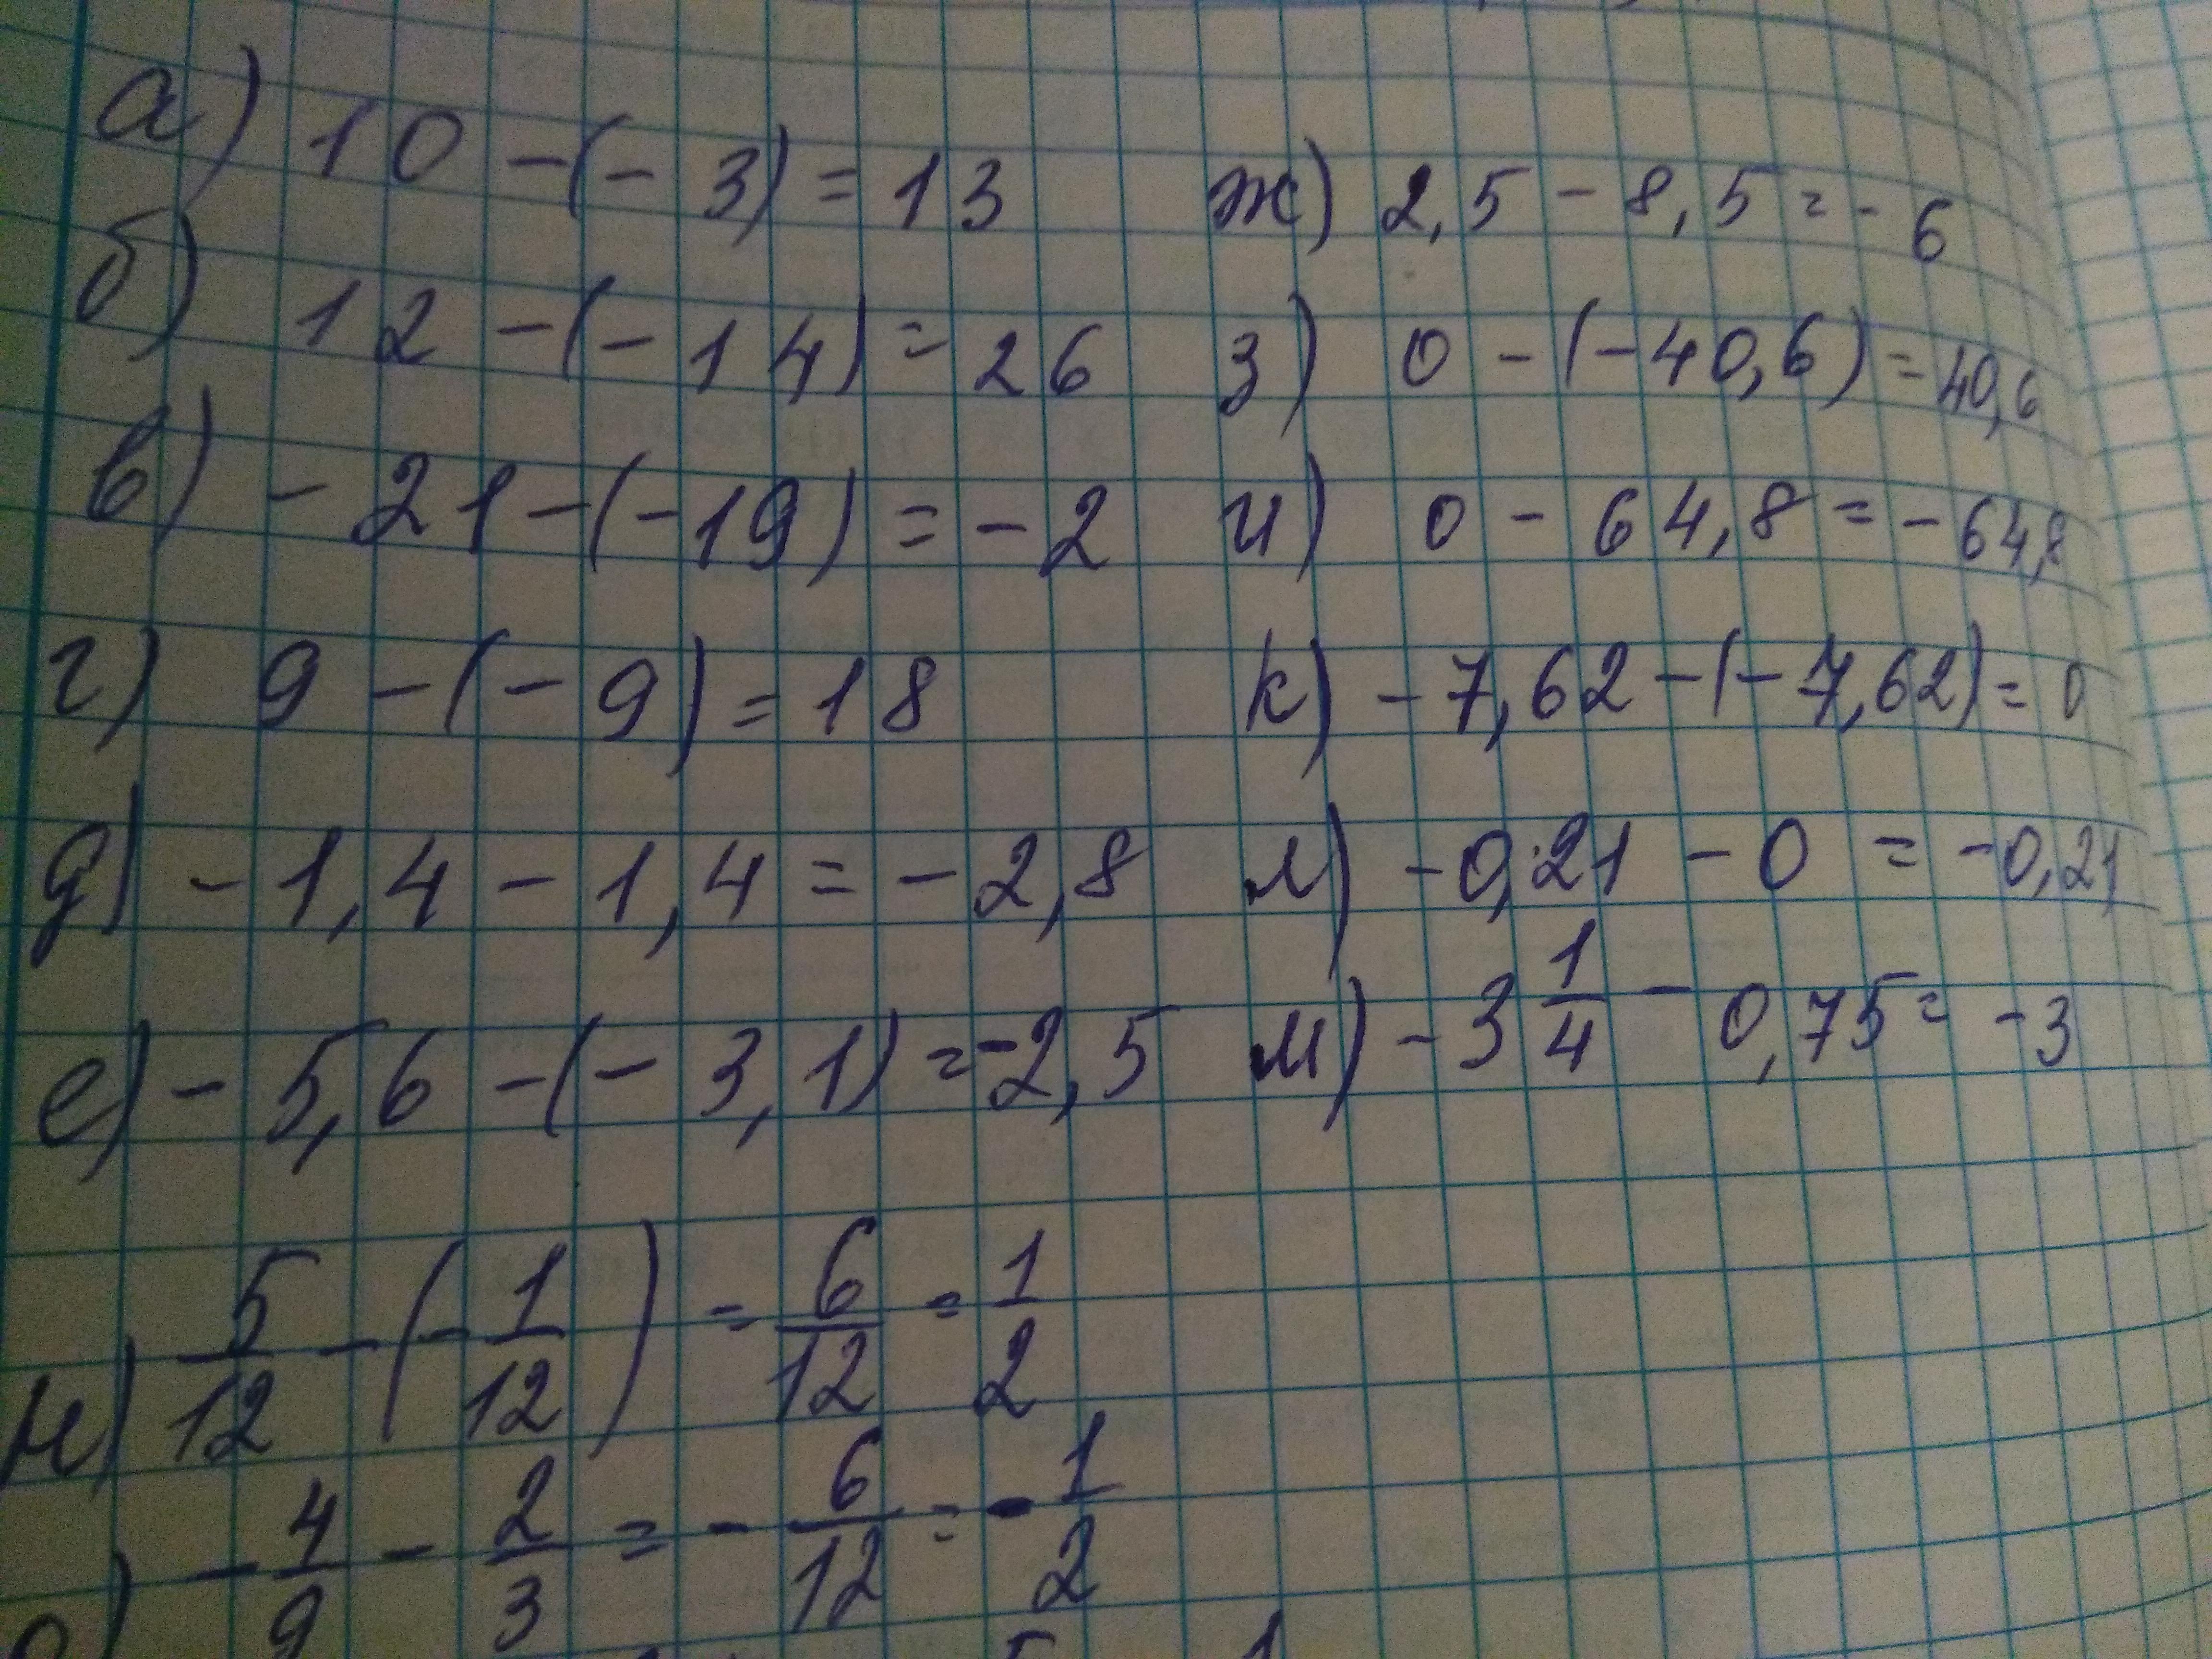 а) 10 - (- 3) = 13
б) 12 - (- 14) = 26
в) - 21 - (-19) = - 2
г) 9 - (- 9) = 18
д) - 1,4 - 1,4 = - 2,8
е) - 5,6 - (- 3,1) = -2,5
ж) 2,5 - 8,5 = - 6
з) 0 - (-40,6) = 40,6
и) 0 - 64,8 = - 64,8
к) - 7,62 - (- 7,62) = 0
л) - 0,21 - 0 = - 0,21
м) - 3 1/4 - 0,75 = - 3
н) 5/12 - (- 1/12) = 6/12 = 1/2
о) - 4/9 - 2/3 = - 6/12 = - 1/2